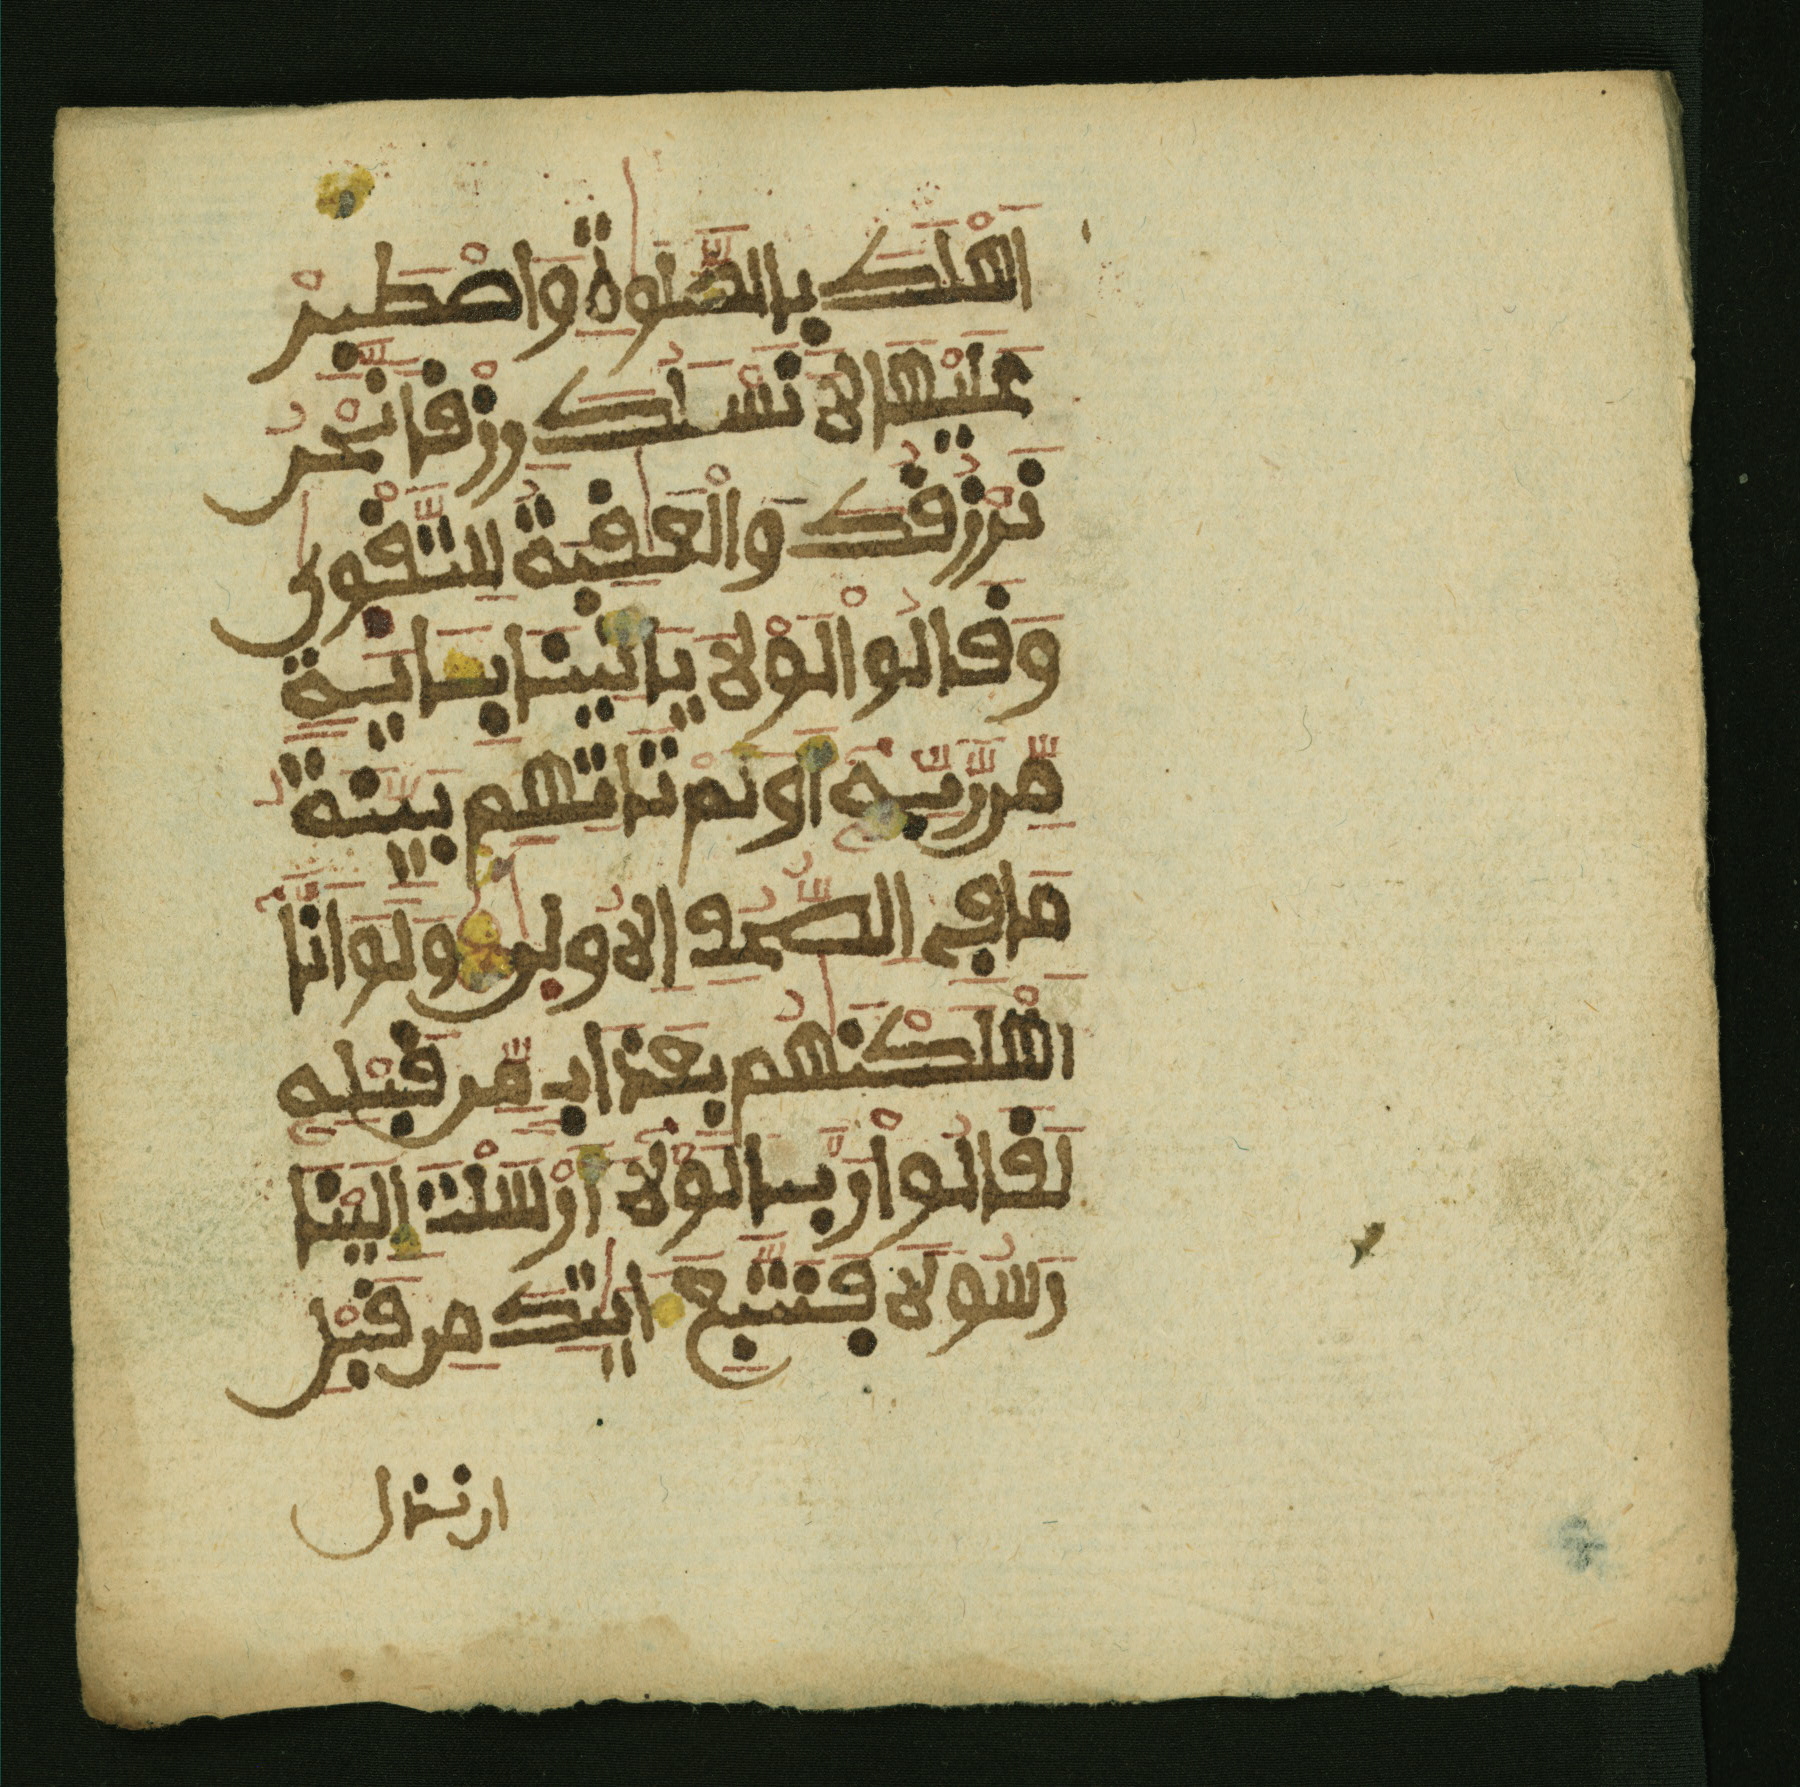 اَهْلَكَ بِالصَّلَوٰةِ وَاصْطَبِرْ
عَلَيْهَا لَا نَسْـَٔلُكَ رِزْقًا نَّحْنُ
نَرْزُقُكَ وَالْعَٰقِبَةُ لِلتَّقْوٰى
وَقَالُوا لَوْلَا يَاتِينَا بِـَٔايَةٍ
مِّن رَّبِّهِۦٓ أَوَلَمْ تَاتِهِم بَيِّنَةُ
مَا فِي الصُّحُفِ الُاولٰى وَلَوَ اَنَّآ
أَهْلَكْنَٰهُم بِعَذَابٍ مِّن قَبْلِهِۦ
لَقَالُوا رَبَّنَا لَوْلَآ أَرْسَلْتَ إِلَيْنَا
رَسُولًا فَنَتَّبِعَ ءَايَٰتِكَ مِن قَبْلِ
ان نذل